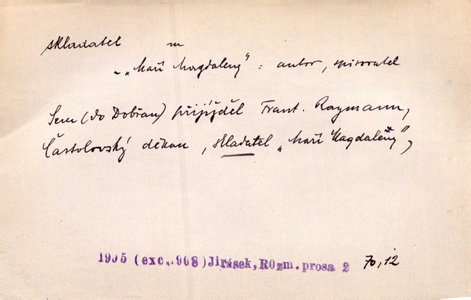 skladatel m
„Maří Magdaleny" : autor, spisovatel
Sem (do Dobřan) přijížděl Frant. Raymann,
Častolovský děkan, skladatel „Maří Magdaleny",
1905 (exc. 968) Jirásek, ROzm. prosa 2 70,12